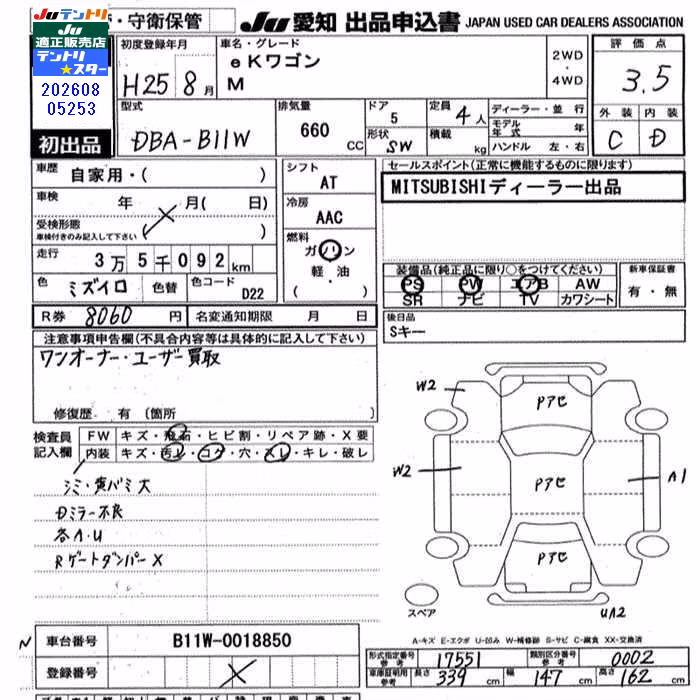 Juテントリ
Ju
適正販売店
テントリ
★スター
202608
05253
・守衛保管
Ju 愛知 出品申込書 JAPAN USED CAR DEALERS ASSOCIATION
初出品
初度登録年月
H25 8月
車名・グレード
eKワゴン
M
2WD
・
4WD
評価点
3.5
外装 内装
C D
型式
DBA-B11W
排気量
660 CC
ドア
5
形状
SW
定員
4人
積載
kg
ディーラー・並行
モデル年式 年
ハンドル 左・右
車歴 自家用・( )
車検 年 月( 日)
受検形態
車検付きのみ記入して下さい ( )
走行 3万5千092km
色 ミズイロ 色替 色コード D22
シフト
AT
冷房
AAC
燃料
ガソリン
軽・油
( )
セールスポイント(正常に機能するものに限ります)
MITSUBISHIディーラー出品
装備品(純正品に限り○をつけてください)
PS PW エアB AW
SR ナビ TV カワシート
新車保証書
有・無
R券 8060円 名変通知期限 月 日
後日品
Sキー
注意事項申告欄(不具合内容等は具体的に記入して下さい)
ワンオーナー・ユーザー買取
修復歴 有(箇所
検査員
記入欄
FW キズ・飛石・ヒビ割・リペア跡・X要
内装 キズ・汚レ・コゲ・穴・スレ・キレ・破レ
シミ・黄バミ大
Dミラー不良
各A・U
RゲートダンパーX
W2
W2
Pアセ
Pアセ
Pアセ
A1
UA2
スペア
A-キズ E-エクボ U-凹み W-補修跡 S-サビ C-腐食 XX-交換済
N
車台番号 B11W-0018850
登録番号 X
形式指定番号
参考 17551
類別区分番号
参考 0002
車庫証明用
参考 長さ 339cm 幅 147cm 高さ 162cm